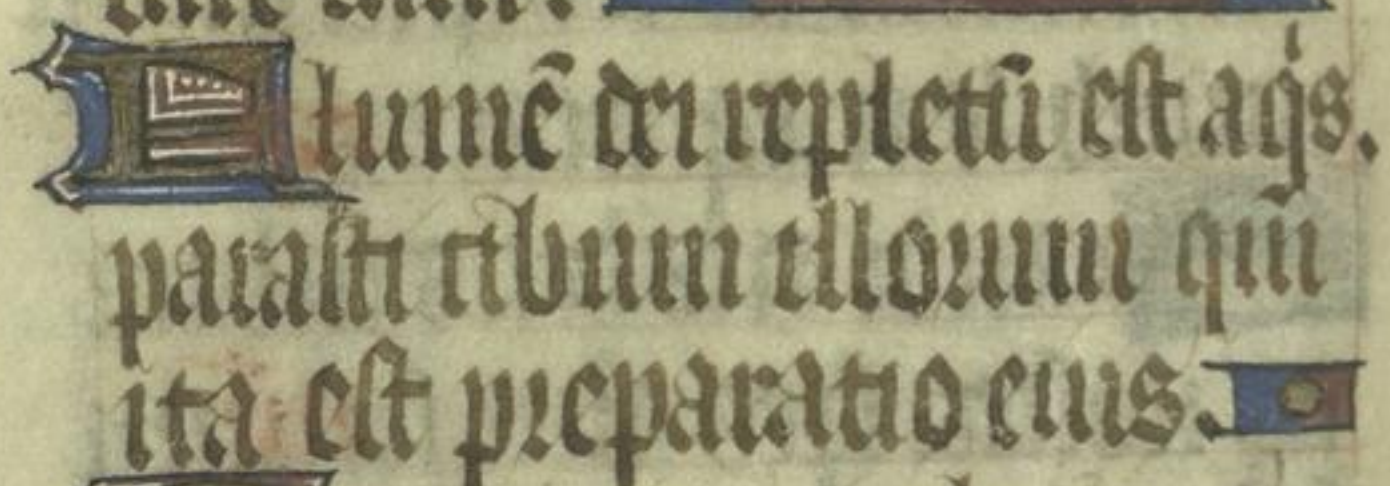 Flumē dei repletū est aq̇s.
parasti cibum illorum qm̄
ita est preparatio eius.